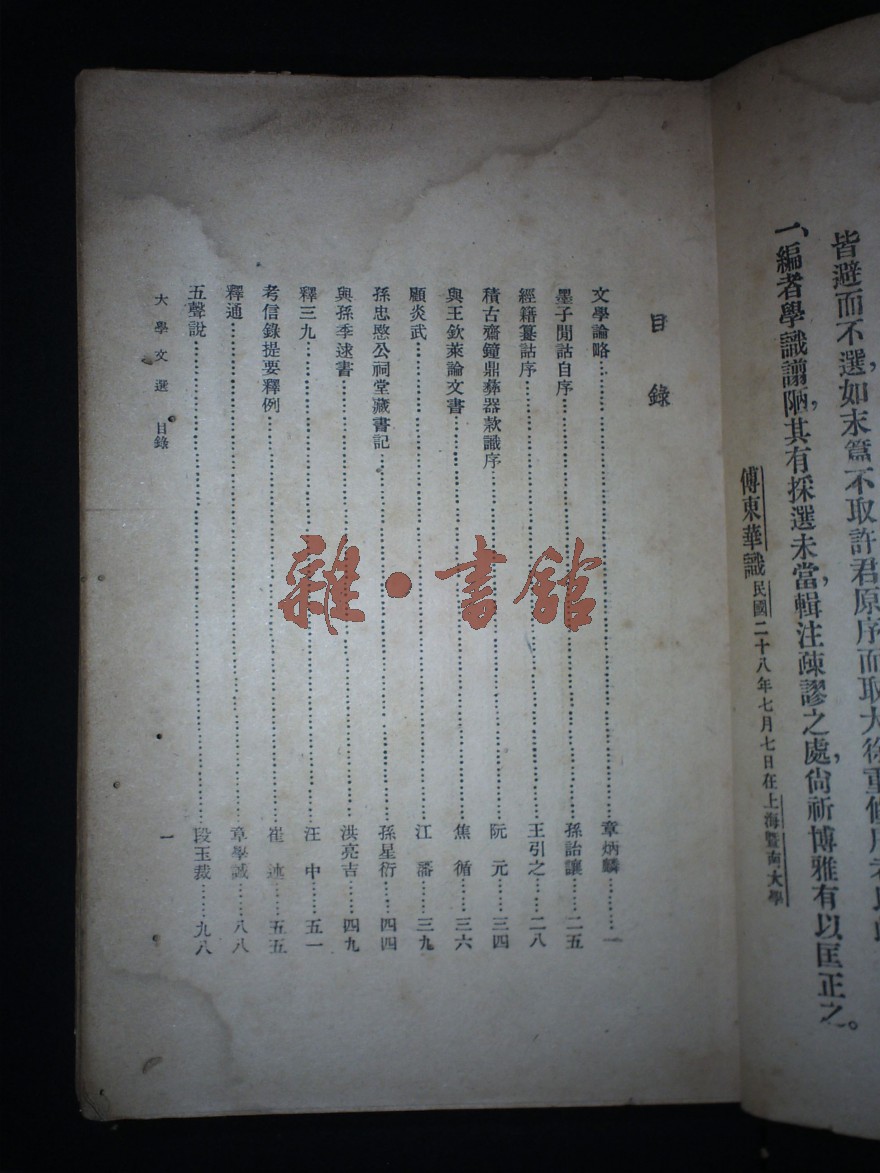 皆避而不選，如末篇不取許君原序而取大徐重修
一、編者學識譾陋，其有採選未當，輯注疎謬之處，尚祈博雅有以匡正之。
傅東華識民國二十八年七月七日在上海暨南大學
目錄
文學論略……章炳麟……一
墨子閒詁自序……孫詒讓……二五
經籍纂詁序……王引之……二八
積古齋鐘鼎彝器款識序……阮元……三四
與王欽萊論文書……焦循……三六
顧炎武……江藩……三九
孫忠愍公祠堂藏書記……孫星衍……四四
與孫季逑書……洪亮吉……四九
釋三九……汪中……五一
考信錄提要釋例……崔述……五五
釋通……章學誠……八八
五聲說……段玉裁……九八
大學文選 目錄
一
雜·書館